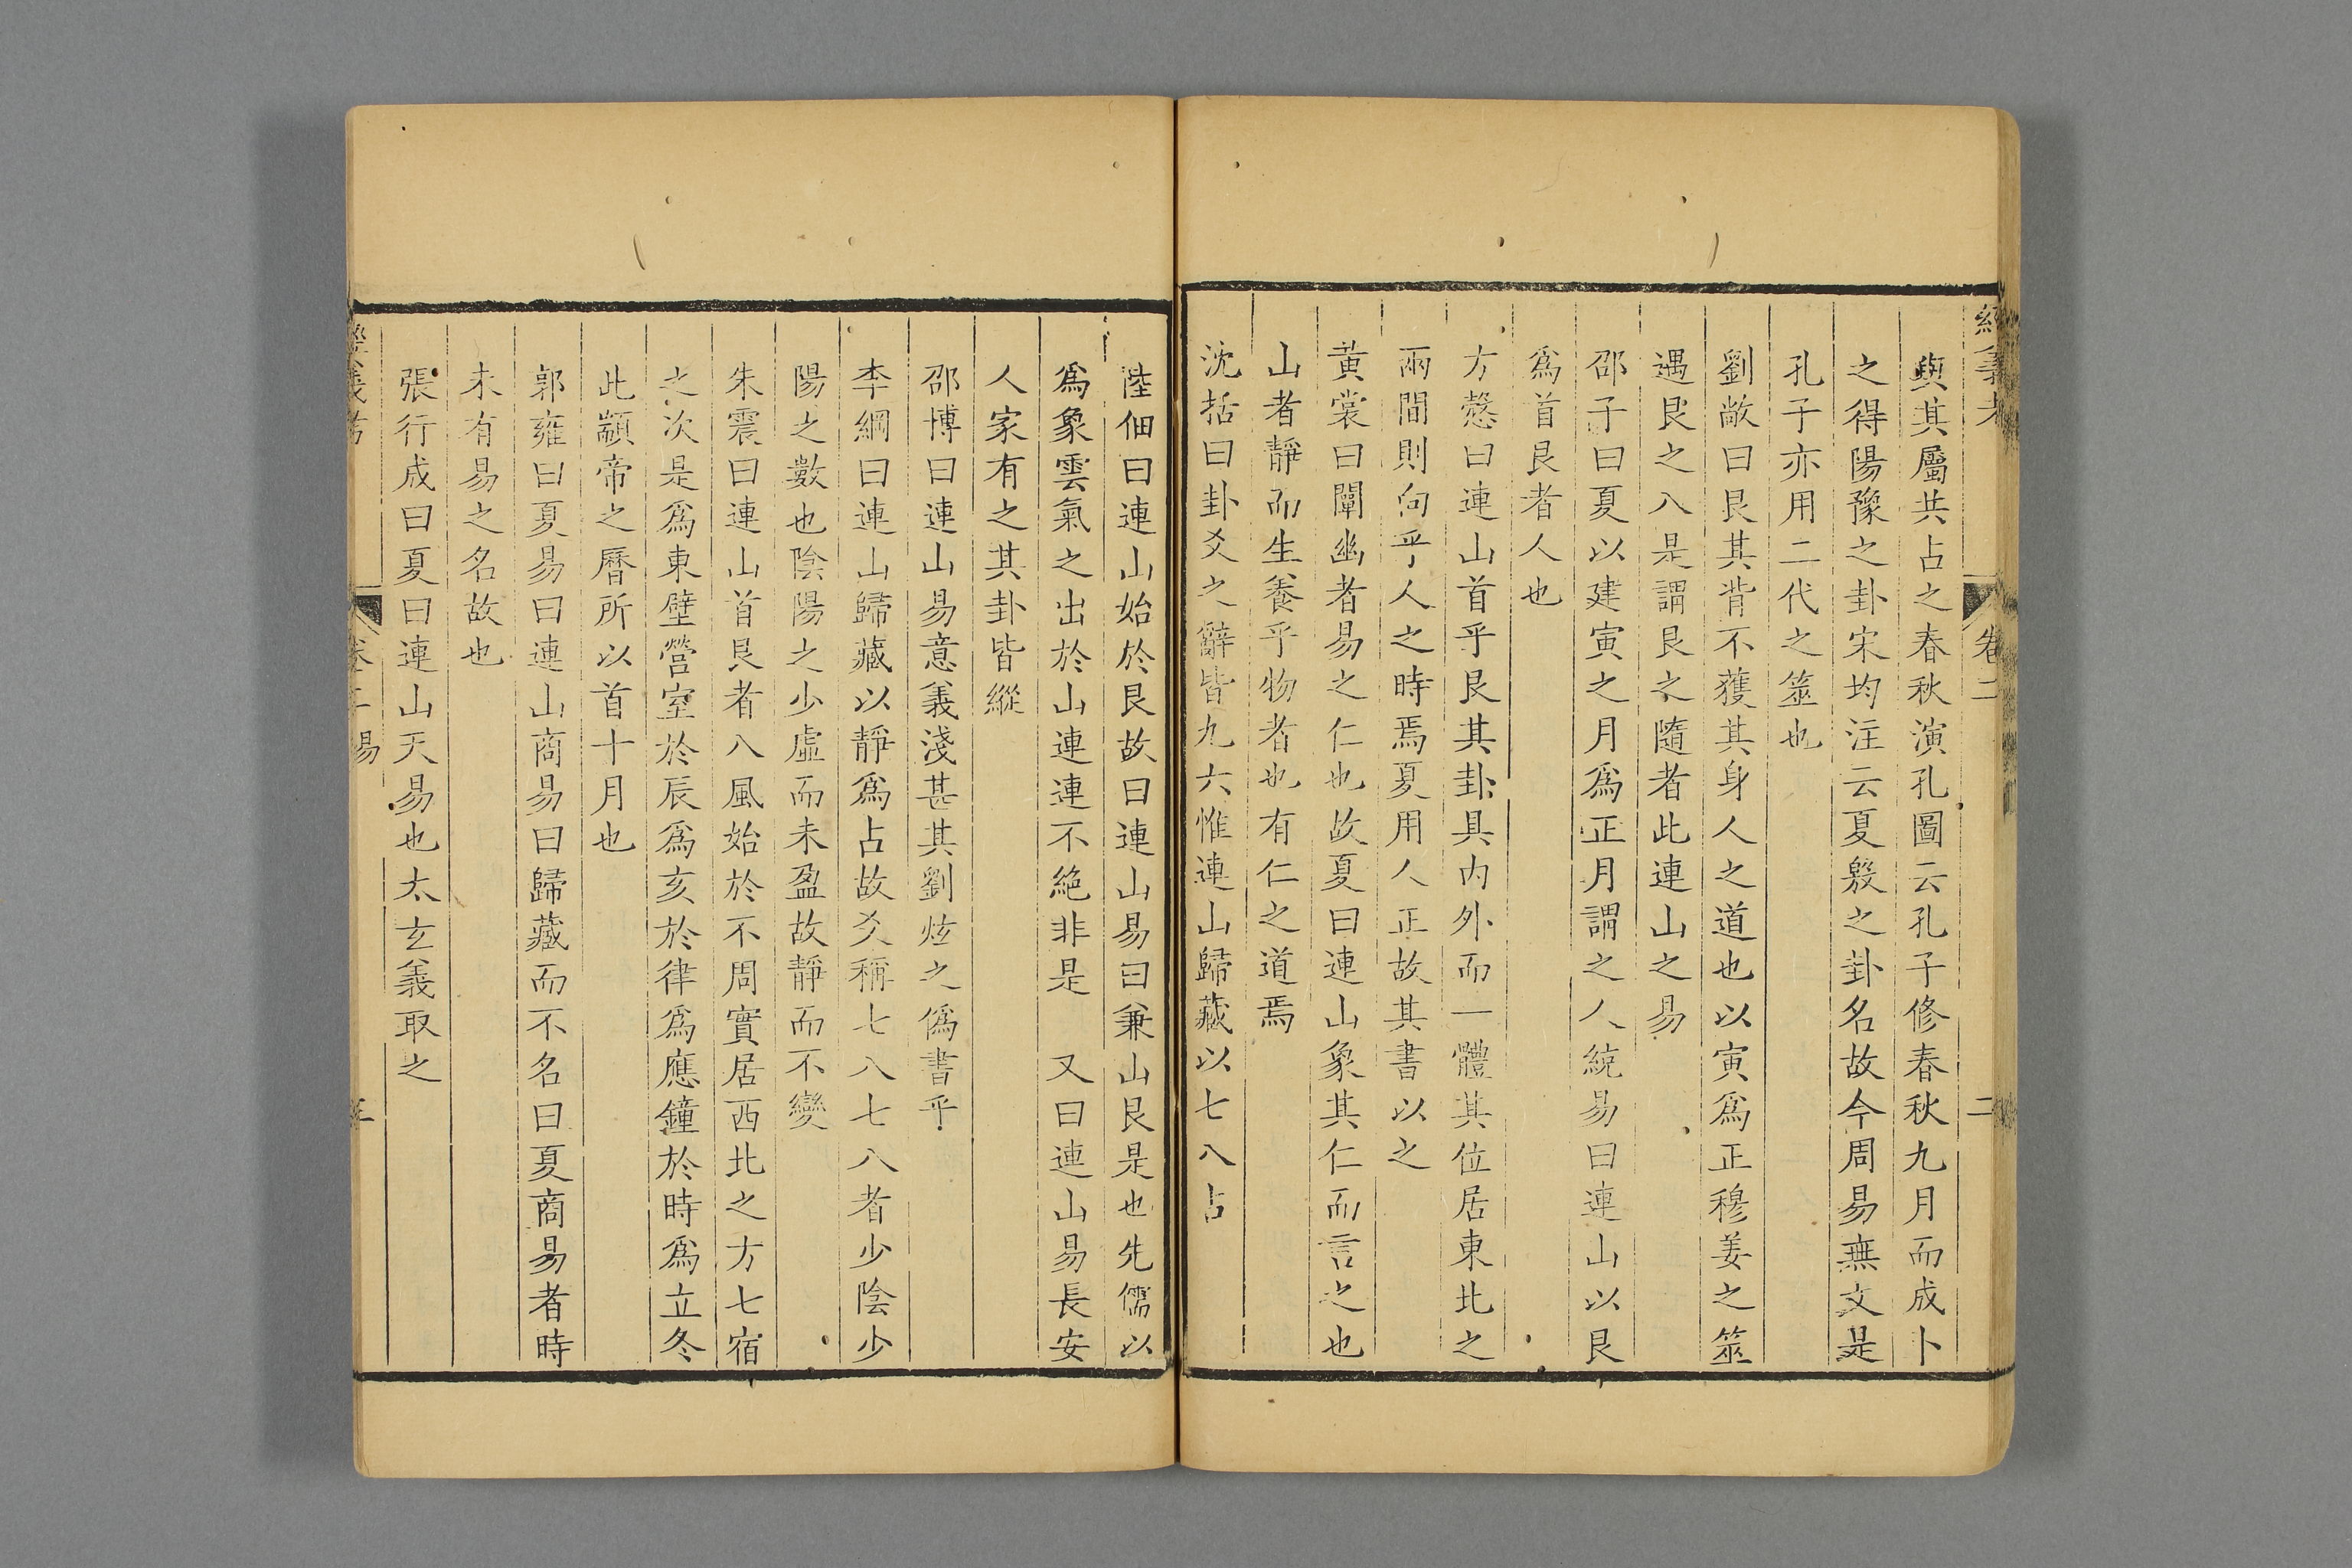 經義考
卷二
二
與其屬共占之春秋演孔圖云孔子修春秋九月而成卜
之得陽豫之卦宋均注云夏殷之卦名故今周易無文是
孔子亦用二代之筮也
劉敞曰艮其背不獲其身人之道也以寅爲正穆姜之筮
遇艮之八是謂艮之隨者此連山之易
邵子曰夏以建寅之月爲正月謂之人統易曰連山以艮
爲首艮者人也
方慤曰連山首乎艮其卦具内外而一體其位居東北之
兩間則向乎人之時焉夏用人正故其書以之
黃裳曰闡幽者易之仁也故夏曰連山象其仁而言之也
山者靜而生養乎物者也有仁之道焉
沈括曰卦爻之辭皆九六惟連山歸藏以七八占
陸佃曰連山始於艮故曰連山易曰兼山艮是也先儒以
爲象雲氣之出於山連連不絶非是　又曰連山易長安
人家有之其卦皆縱
邵博曰連山易意義淺甚其劉炫之僞書乎
李綱曰連山歸藏以靜爲占故爻稱七八七八者少陰少
陽之數也陰陽之少虛而未盈故靜而不變
朱震曰連山首艮者八風始於不周實居西北之方七宿
之次是爲東壁營室於辰爲亥於律爲應鐘於時爲立冬
此顓帝之曆所以首十月也
郭雍曰夏易曰連山商易曰歸藏而不名曰夏商易者時
未有易之名故也
張行成曰夏曰連山天易也太玄義取之
經義考
卷二易